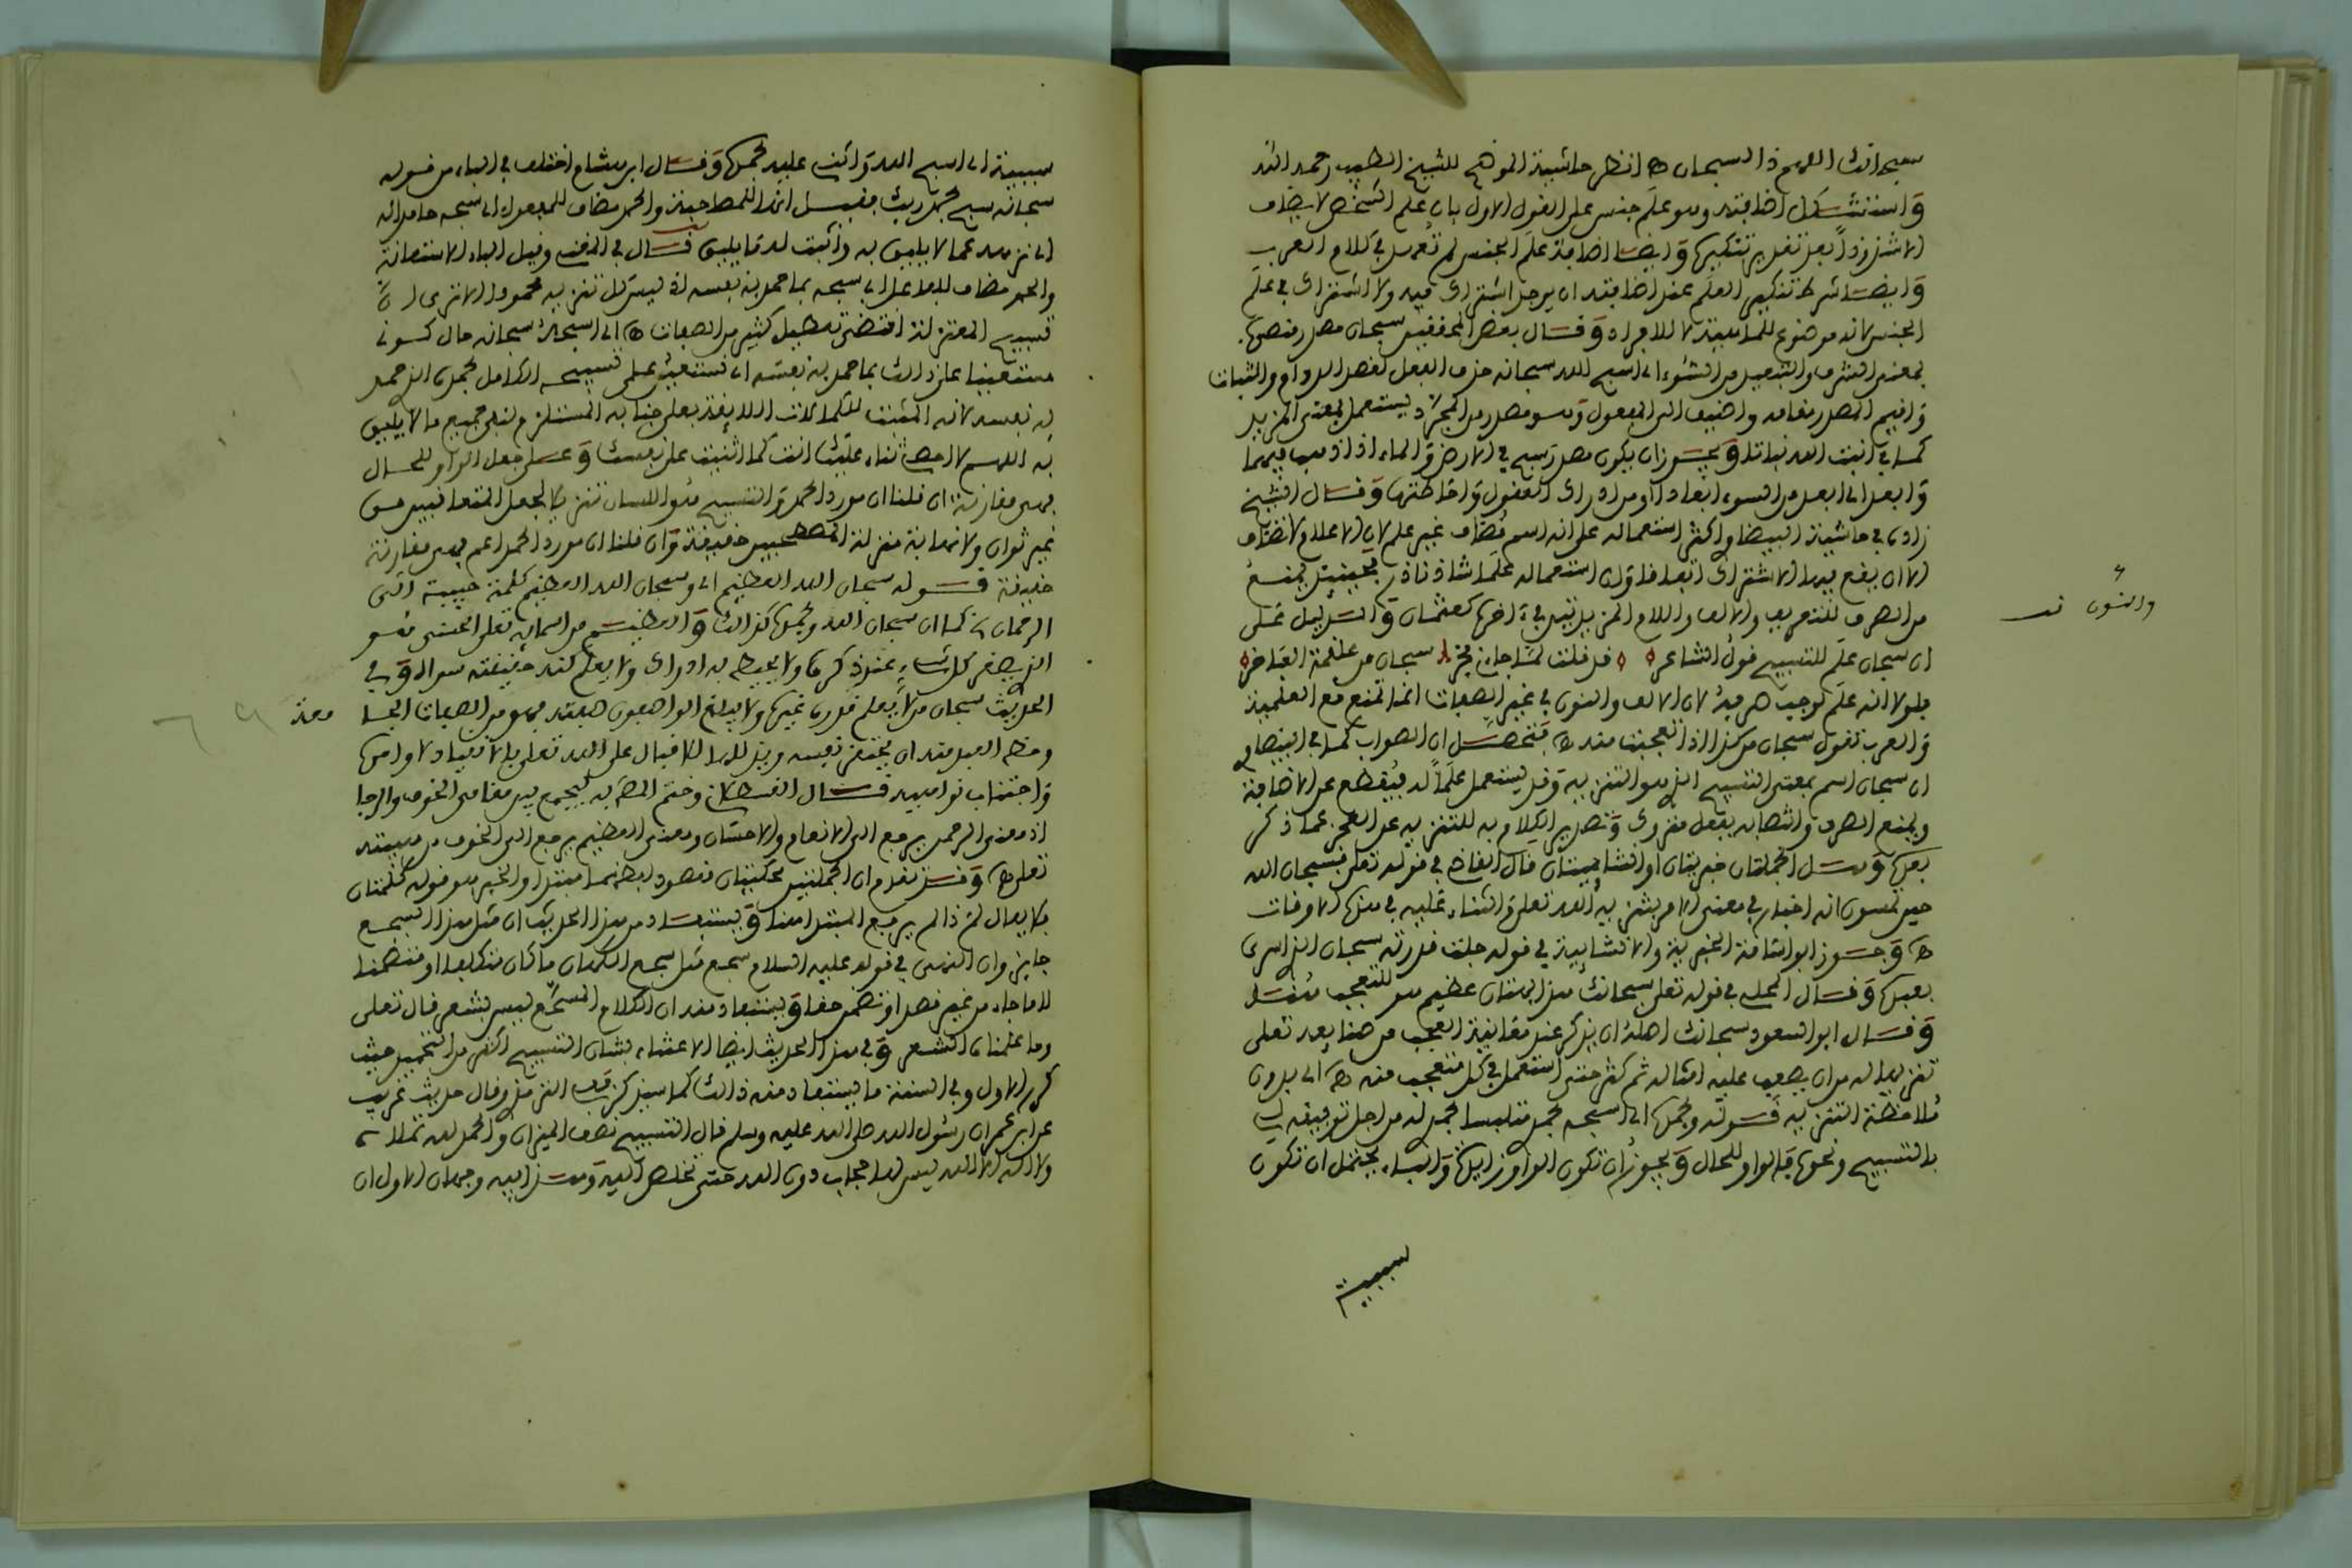 سبحانك اللهم ذا السبحان ه انظر حاشية الموضح للشيخ الطيب رحمه الله
واستشكل اضافته وهو علم جنس على القول الاول بان علم الشخص لا يضاف
الا شذوذا بعد تقدير تنكيره وايضا اضافة علم الجنس لم تعهد في كلام العرب
وايضا شرط تنكير العلم عند اضافته ان يوجد اشتراك فيه ولا اشتراك في علم
الجنس لانه موضوع للماهية لا للافراد وقال بعض المحققين سبحان مصدر
بمعنى التنزيه والتبعيد من السوء اي اسبح الله سبحانه حذف الفعل لقصد الدوام والثبات
واقيم المصدر مقامه واضيف الى المفعول وهو مصدر من المجرد يستعمل بمعنى المزيد
كما في انبت الله نباتا ويجوز ان يكون مصدر سبح في الارض والماء اذا ذهب فيهما
وابعد اي ابعد من السوء ابعادا او من ادراك العقول واحاطتها وقال الشيخ
زاده في حاشية البيضاوي اكثر استعماله على انه اسم مضاف غير علم لان الاعلام لا تضاف
الا ان يقع فيها الاشتراك اتفاقا وان استعماله علما شاذ نادر فحينئذ يمنع
من الصرف للتعريف والالف واللام المزيدتين في اخره كعثمان والدليل على
ان سبحان علم للتسبيح قول الشاعر قد قلت لما جاءني فخره سبحان من علقمة الفاخر
فلولا انه علم لوجب صرفه لان الالف والنون في غير الصفات انما تمنع مع العلمية
والعرب تقول سبحان من كذا اذا تعجبت منه ه فتحصل ان الصواب كما في البيضاوي
ان سبحان اسم بمعنى التسبيح الذي هو التنزيه وقد يستعمل علما له فيقطع عن الاضافة
ويمنع الصرف وانتصابه بفعل متروك وتصدير الكلام به للتنزيه عن العجز عما ذكر
بعد وهل الجملتان خبريتان او انشائيتان قال القاضي في قوله تعلى فسبحان الله
حين تمسون انه اخبار في معنى الامر بتنزيه الله تعلى والثناء عليه في هذه الاوقات
ه وجوز ابو السعود الخبرية والانشائية في قوله جلت قدرته سبحان الذي اسرى
بعبده وقال المحلي في قوله تعلى سبحانك هذا بهتان عظيم هو للتعجب هنا
وقال ابو السعود سبحانك اصله ان يذكر عند معاينة العجب من صنايعه تعلى
تنزيها له من ان يصعب عليه امثاله ثم كثر حتى استعمل في كل متعجب منه ه اي بدون
ملاحظة التنزيه قوله وبحمده اي اسبحه بحمد متلبسا بحمدي له من اجل توفيقه لي
بالتسبيح ونحوه فالواو للحال ويجوز ان تكون الواو زايدة والباء يحتمل ان تكون
سببية
والنون
سببية اي اسبح الله واثني عليه بحمده وقال ابن هشام اختلف في الباء من قوله
سبحانه سبح بحمد ربك فقيل انها للمصاحبة والحمد مضاف للمفعول اي سبحه حامدا له
اي نزهه عما لا يليق به واثبت له ما يليق قال في المغني وقيل الباء للاستعانة
والحمد مضاف للفاعل اي سبحه بما حمد به نفسه اذ ليس كل تنزيه محمود الا ترى ان
تسبيح المعتزلة اقتضى تعطيل كثير من الصفات ه اي اسبحه سبحانه حال كوني
مستعينا على ذالك بما حمد به نفسه اي نستعين على تسبيحه الكامل بحمده الذي حمد
به نفسه لانه المثبت للكمالات اللايقة بعلي جنابه المستلزم لنفي جميع ما لا يليق
به اللهم لا احصي ثناء عليك انت كما اثنيت على نفسك وعلى جعل الواو للحال
فهي مقارنة ان قلنا ان مورد الحمد والتسبيح هو اللسان تنزيلا لجعل المتعاقبين من
غير توان ولا مهلة منزلة المصطحبين حقيقة وان قلنا ان مورد الحمد اعم فهي مقارنة
حقيقة قوله سبحان الله العظيم اي وسبحان الله العظيم كلمة حبيبة الى
الرحمان كما ان سبحان الله وبحمده كذالك والعظيم من اسمائه تعلى الحسنى هو
الذي يصغر كل شيء عند ذكره ولا يحيط به ادراك ولا يعلم كنه حقيقته سواه وفي
الحديث سبحان من لا يعلم قدره غيره ولا يبلغ الواصفون صفته فهو من الصفات الجامعة
وحظ العبد منه ان يحتقر نفسه ويذللها للاقبال على الله تعلى بالانقياد لاوامره
واجتناب نواهيه قال القسطلاني وختم المصنف به ليجمع بين مقامي الخوف والرجا
اذ معنى الرحمن يرجع الى الانعام والاحسان ومعنى العظيم يرجع الى الخوف من هيبته
تعلى ه وقد تقدم ان الجملتين محكيتان مقصود لفظهما مبتدا والخبر هو قوله كلمتان
فلا يقال لم ذا لم يرفع المبتدا هنا ويستفاد من هذا الحديث ان مثل هذا السجع
جايز وان النهي في قوله عليه السلام سجع مثل سجع الكهان ما كان متكلفا او متضمنا
لا ما جاء من غير قصد او تضمن حقا ويستفاد منه ان الكلام المسجع ليس بشعر قال تعلى
وما علمناه الشعر وفي هذا الحديث ايضا الاعتناء بشان التسبيح اكثر من التحميد حيث
كرر الاول وفي السنة ما يستفاد منه ذالك كما سيذكر قريب الترمذي وقال حديث غريب
عن ابن عمر ان رسول الله صلى الله عليه وسلم قال التسبيح نصف الميزان والحمد لله تملاه
ولا اله الا الله ليس لها حجاب دون الله حتى تخلص اليه وهذا فيه وجهان الاول ان